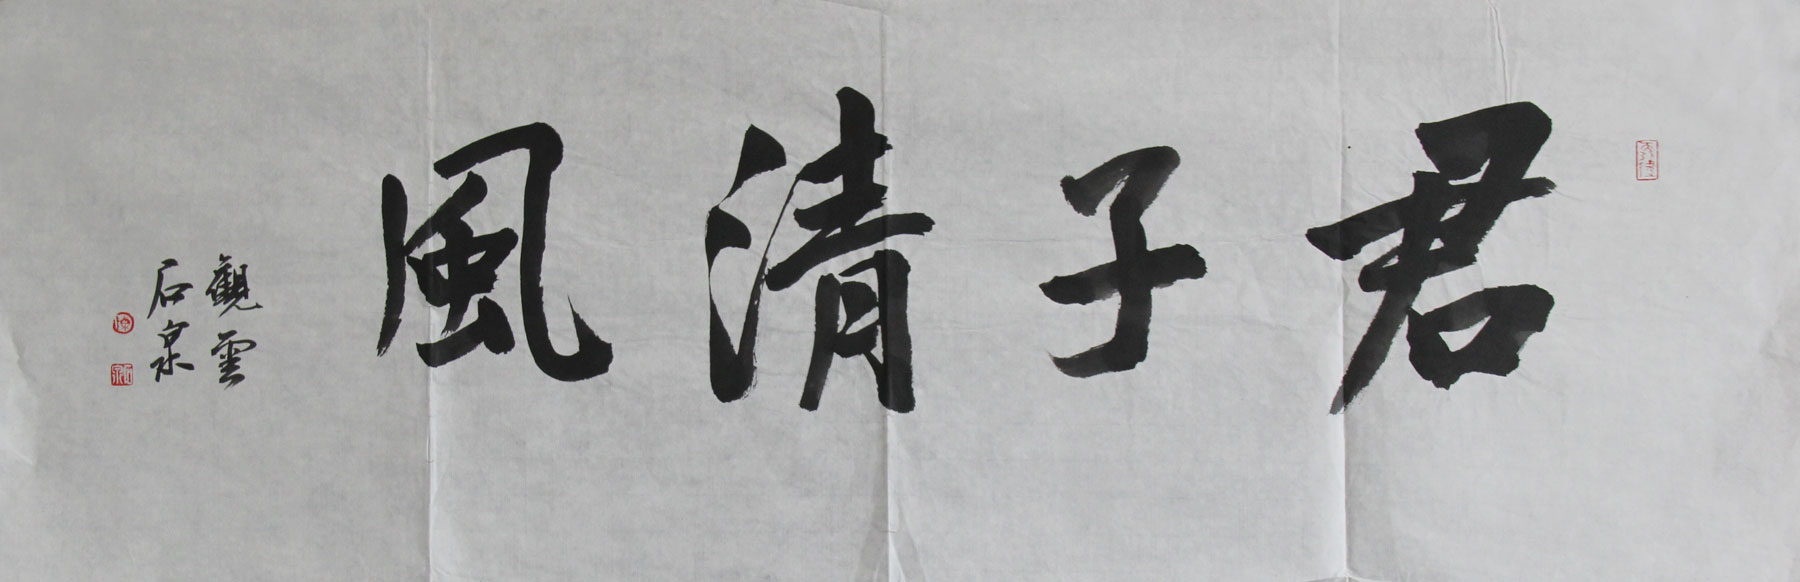 君子清風
觀雲
石泉